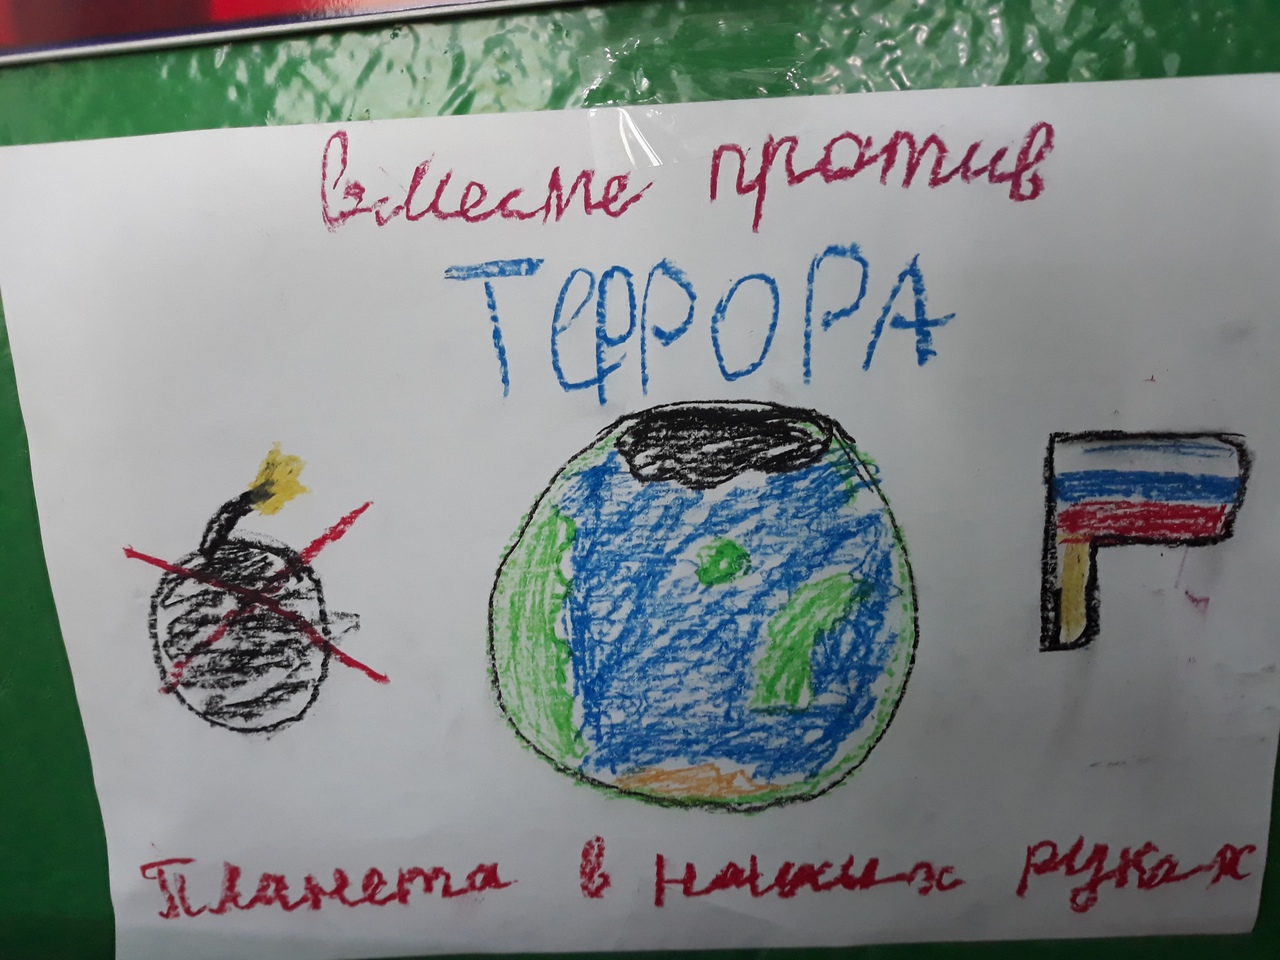 Вместе против
ТЕРРОРА
Планета в наших руках